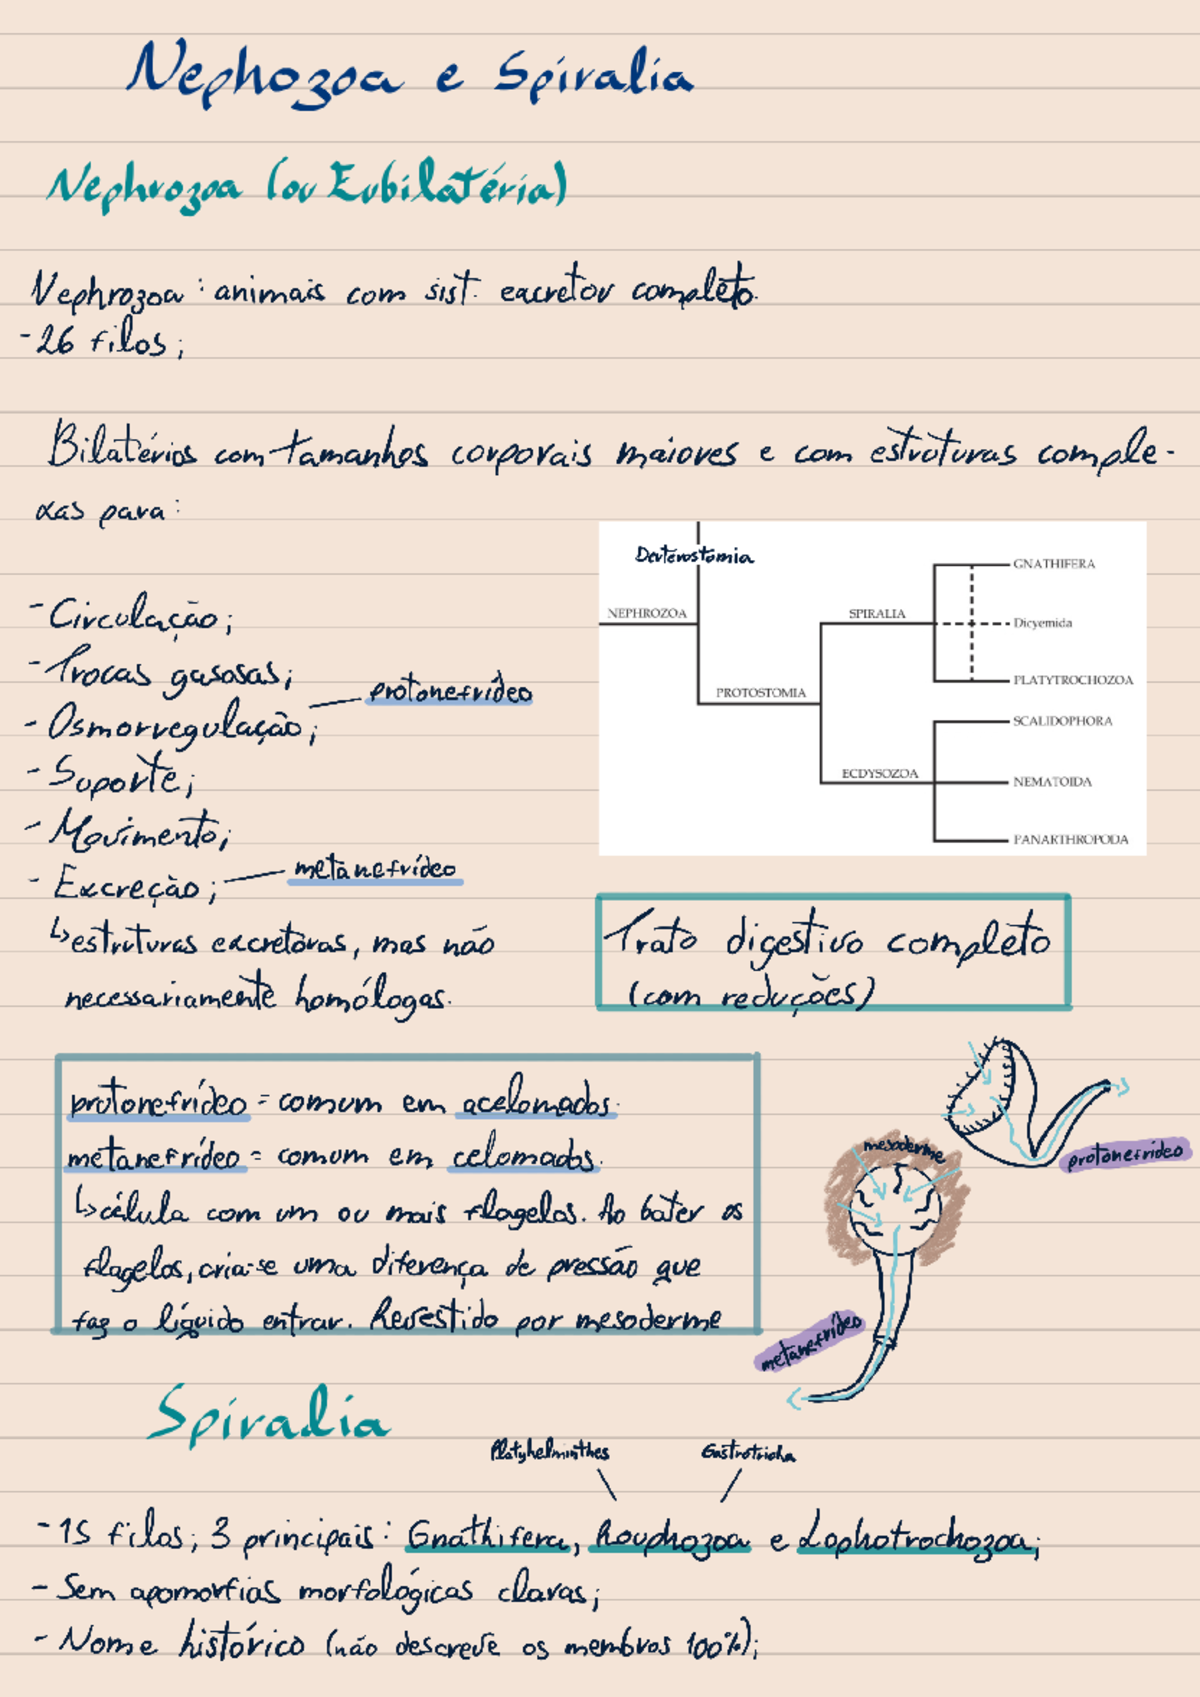 Nephozoa e Spiralia
Nephrozoa (ou Eubilatéria)
Nephrozoa: animais com sist. excretor completo.
-26 filos;
Bilatérios com tamanhos corporais maiores e com estruturas comple-
xas para:
-Circulação;
-Trocas gasosas;
protonefrídeo
-Osmorregulação;
-Suporte;
-Movimento;
-Excreção;
metanefrídeo
↳estruturas excretoras, mas não
necessariamente homólogas.
Deuterostomia
NEPHROZOA
PROTOSTOMIA
SPIRALIA
ECDYSOZOA
GNATHIFERA
Dicyemida
PLATYTROCHOZOA
SCALIDOPHORA
NEMATOIDA
PANARTHROPODA
Trato digestivo completo
(com reduções)
protonefrídeo = comum em acelomados.
metanefrídeo = comum em celomados.
↳célula com um ou mais flagelos. Ao bater os
flagelos, cria-se uma diferença de pressão que
faz o líquido entrar. Revestido por mesoderme
protonefrídeo
mesoderme
metanefrídeo
Spiralia
Platyhelminthes
Gastrotricha
-15 filos; 3 principais: Gnathifera, Rouphozoa e Lophotrochozoa;
- Sem apomorfias morfológicas claras;
- Nome histórico (não descreve os membros 100%);